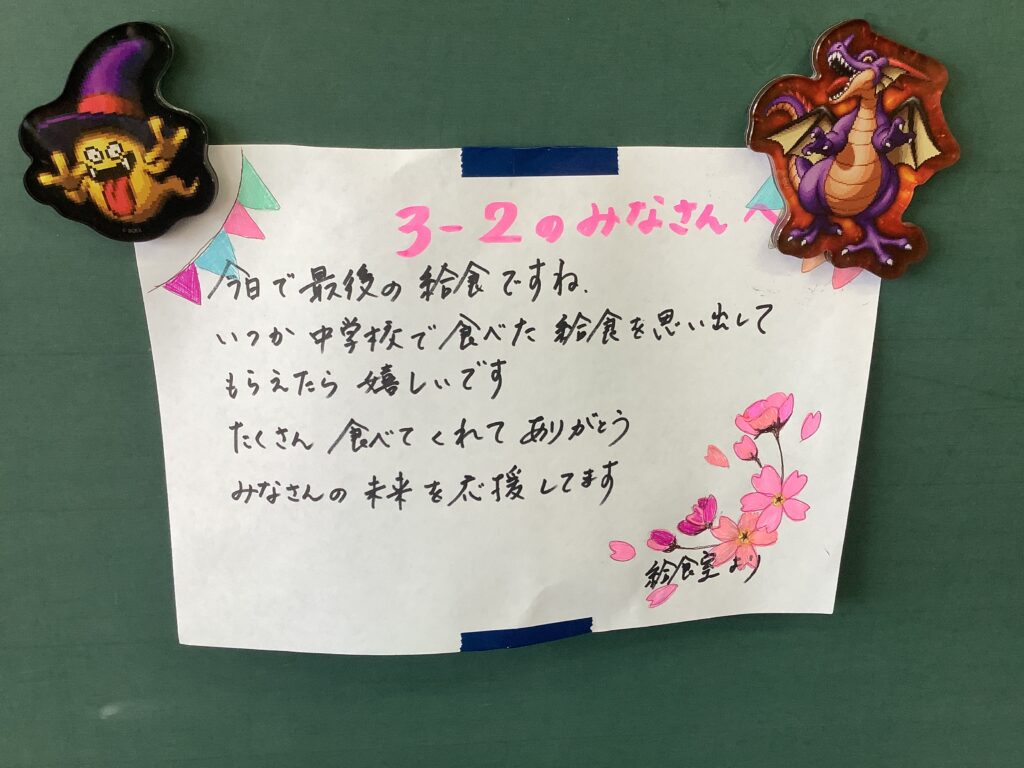 3-2のみなさんへ
今日で最後の給食ですね.
いつか中学校で食べた給食を思い出して
もらえたら嬉しいです
たくさん食べてくれてありがとう
みなさんの未来を応援してます
給食室より